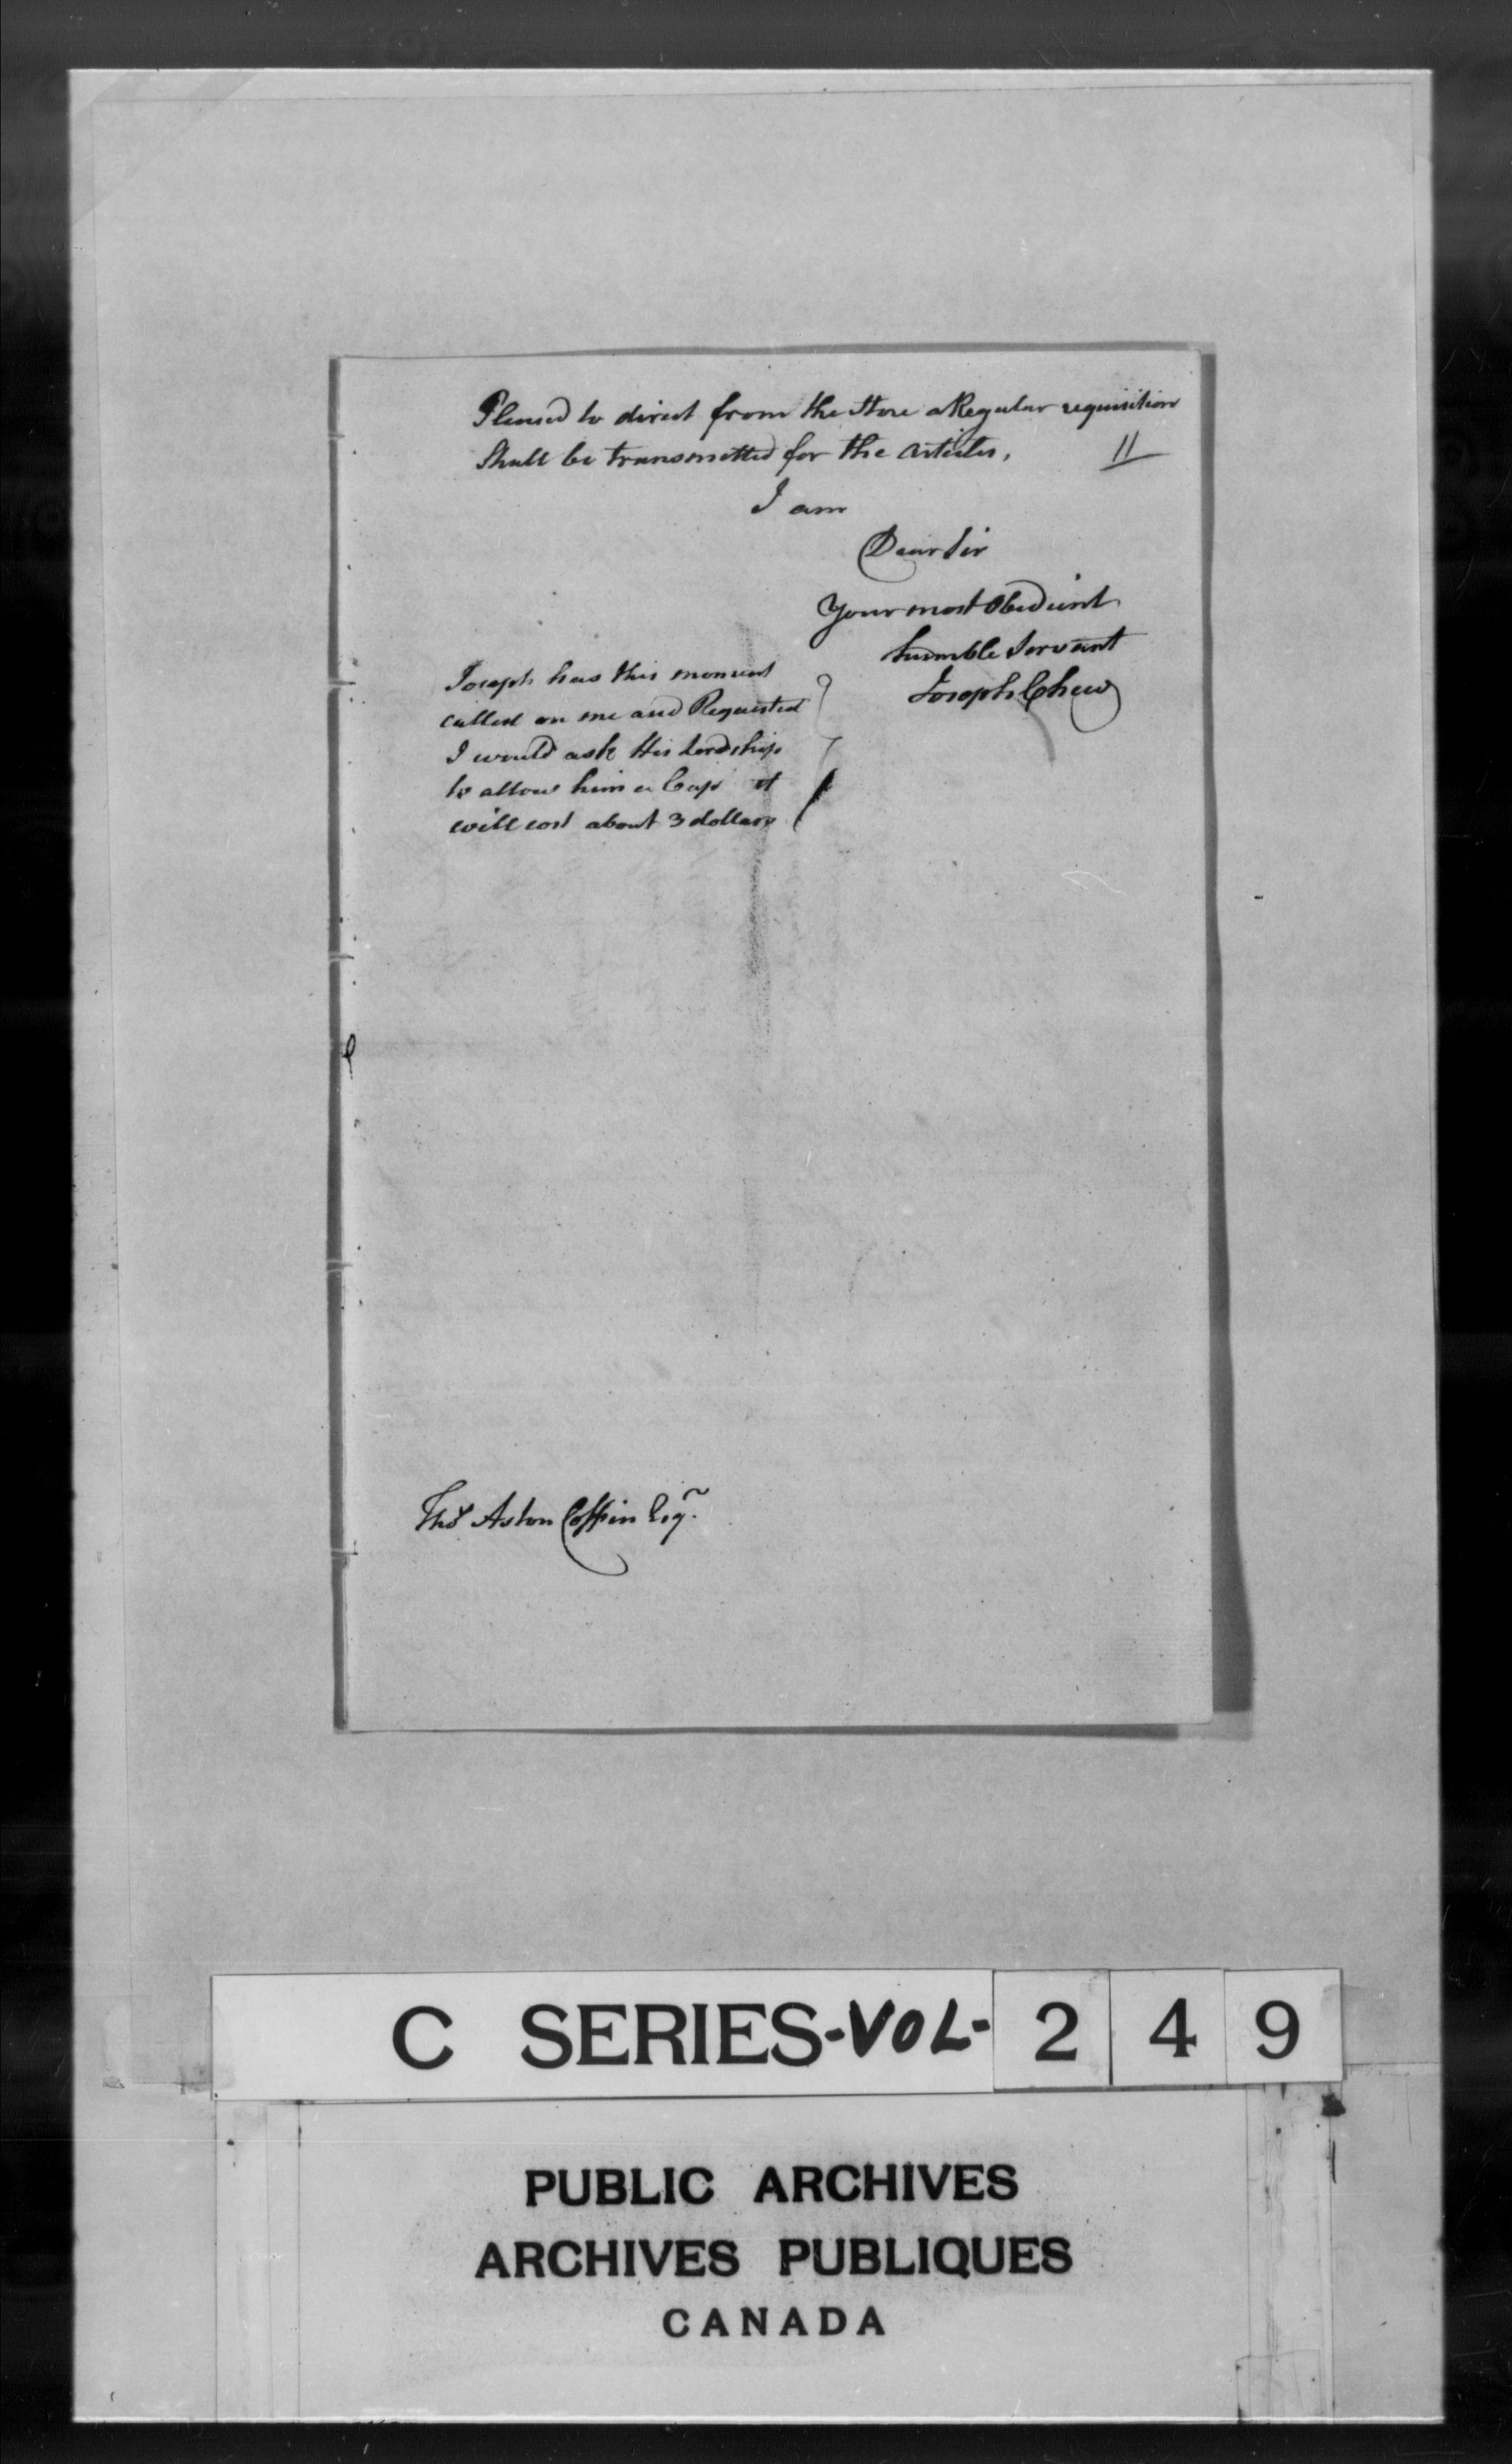 Pleased to direct from the Store a Regular requisition
Shall be transmitted for the articles,
11
I am
Dear Sir
Your most Obedient
humble Servant
Joseph Chew
Joseph has this moment
called on me and Requested
I would ask His Lordship
to allow him a Cap it
will cost about 3 dollars
Thos Aston Coffin Esqr.
C SERIES-VOL-249
PUBLIC ARCHIVES
ARCHIVES PUBLIQUES
CANADA